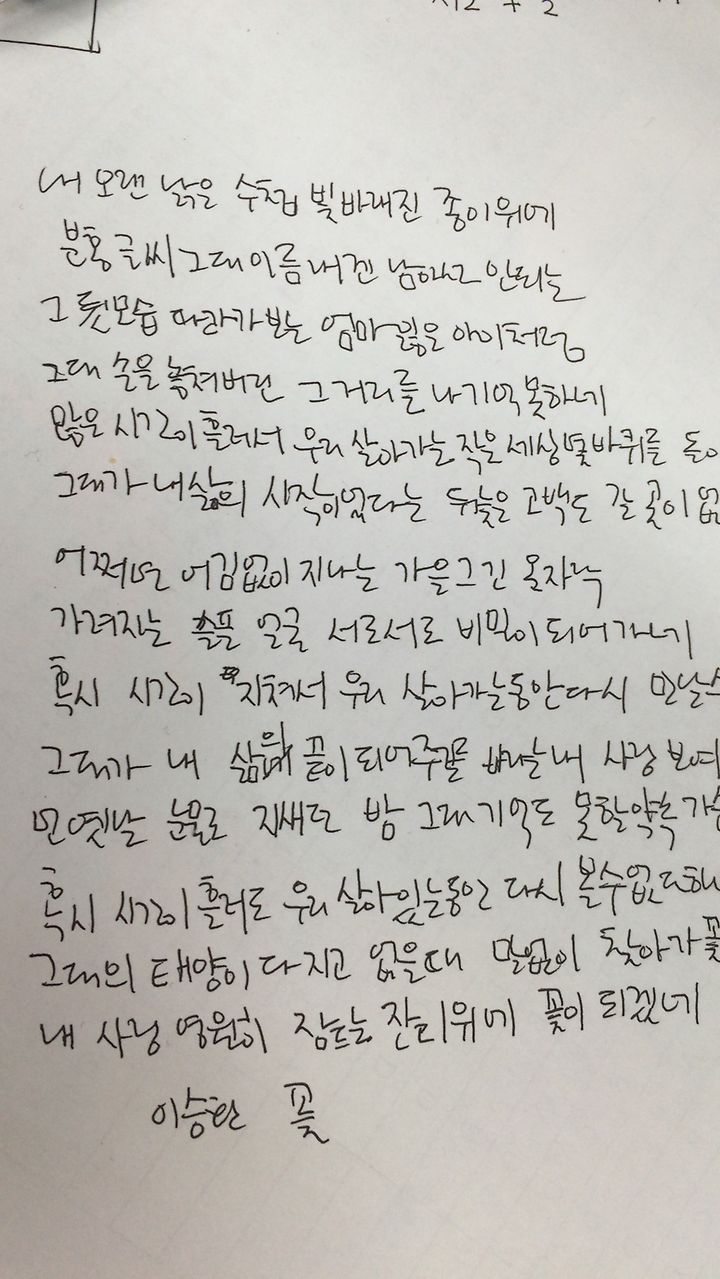 내 오랜 낡은 수첩 빛바래진 종이위에
분홍글씨 그대이름 내겐 남아있고 안되는
그 뒷모습 따라가 보는 엄마 잃은 아이처럼
그대 손을 놓쳐버린 그거리를 나 기억 못하네
많은 시간이 흘러서 우리 살아가는 작은세상 몇바퀴를 돌아
그대가 내삶의 시작이었다는 뒤늦은 고백도 갈 곳이 없
어쩌면 어김없이 지나는 가을 그 긴 옷자락
가려지는 슬픈 얼굴 서로서로 비밀이 되어가네
혹시 시간이 지쳐서 우리 살아가는동안 다시 만날수
그대가 내 삶의 끝이 되어주길 바라는 내 사랑 보여
먼 옛날 눈물로 지새던 밤 그대 기억도 못할 약속 가슴
혹시 시간이 흘러도 우리 살아있는동안 다시 볼수없다해
그대의 태양이 다 지고 없을때 말없이 찾아가 꽃
내 사랑 영원히 잠드는 잔디위에 꽃이 되겠네
이승환 꽃